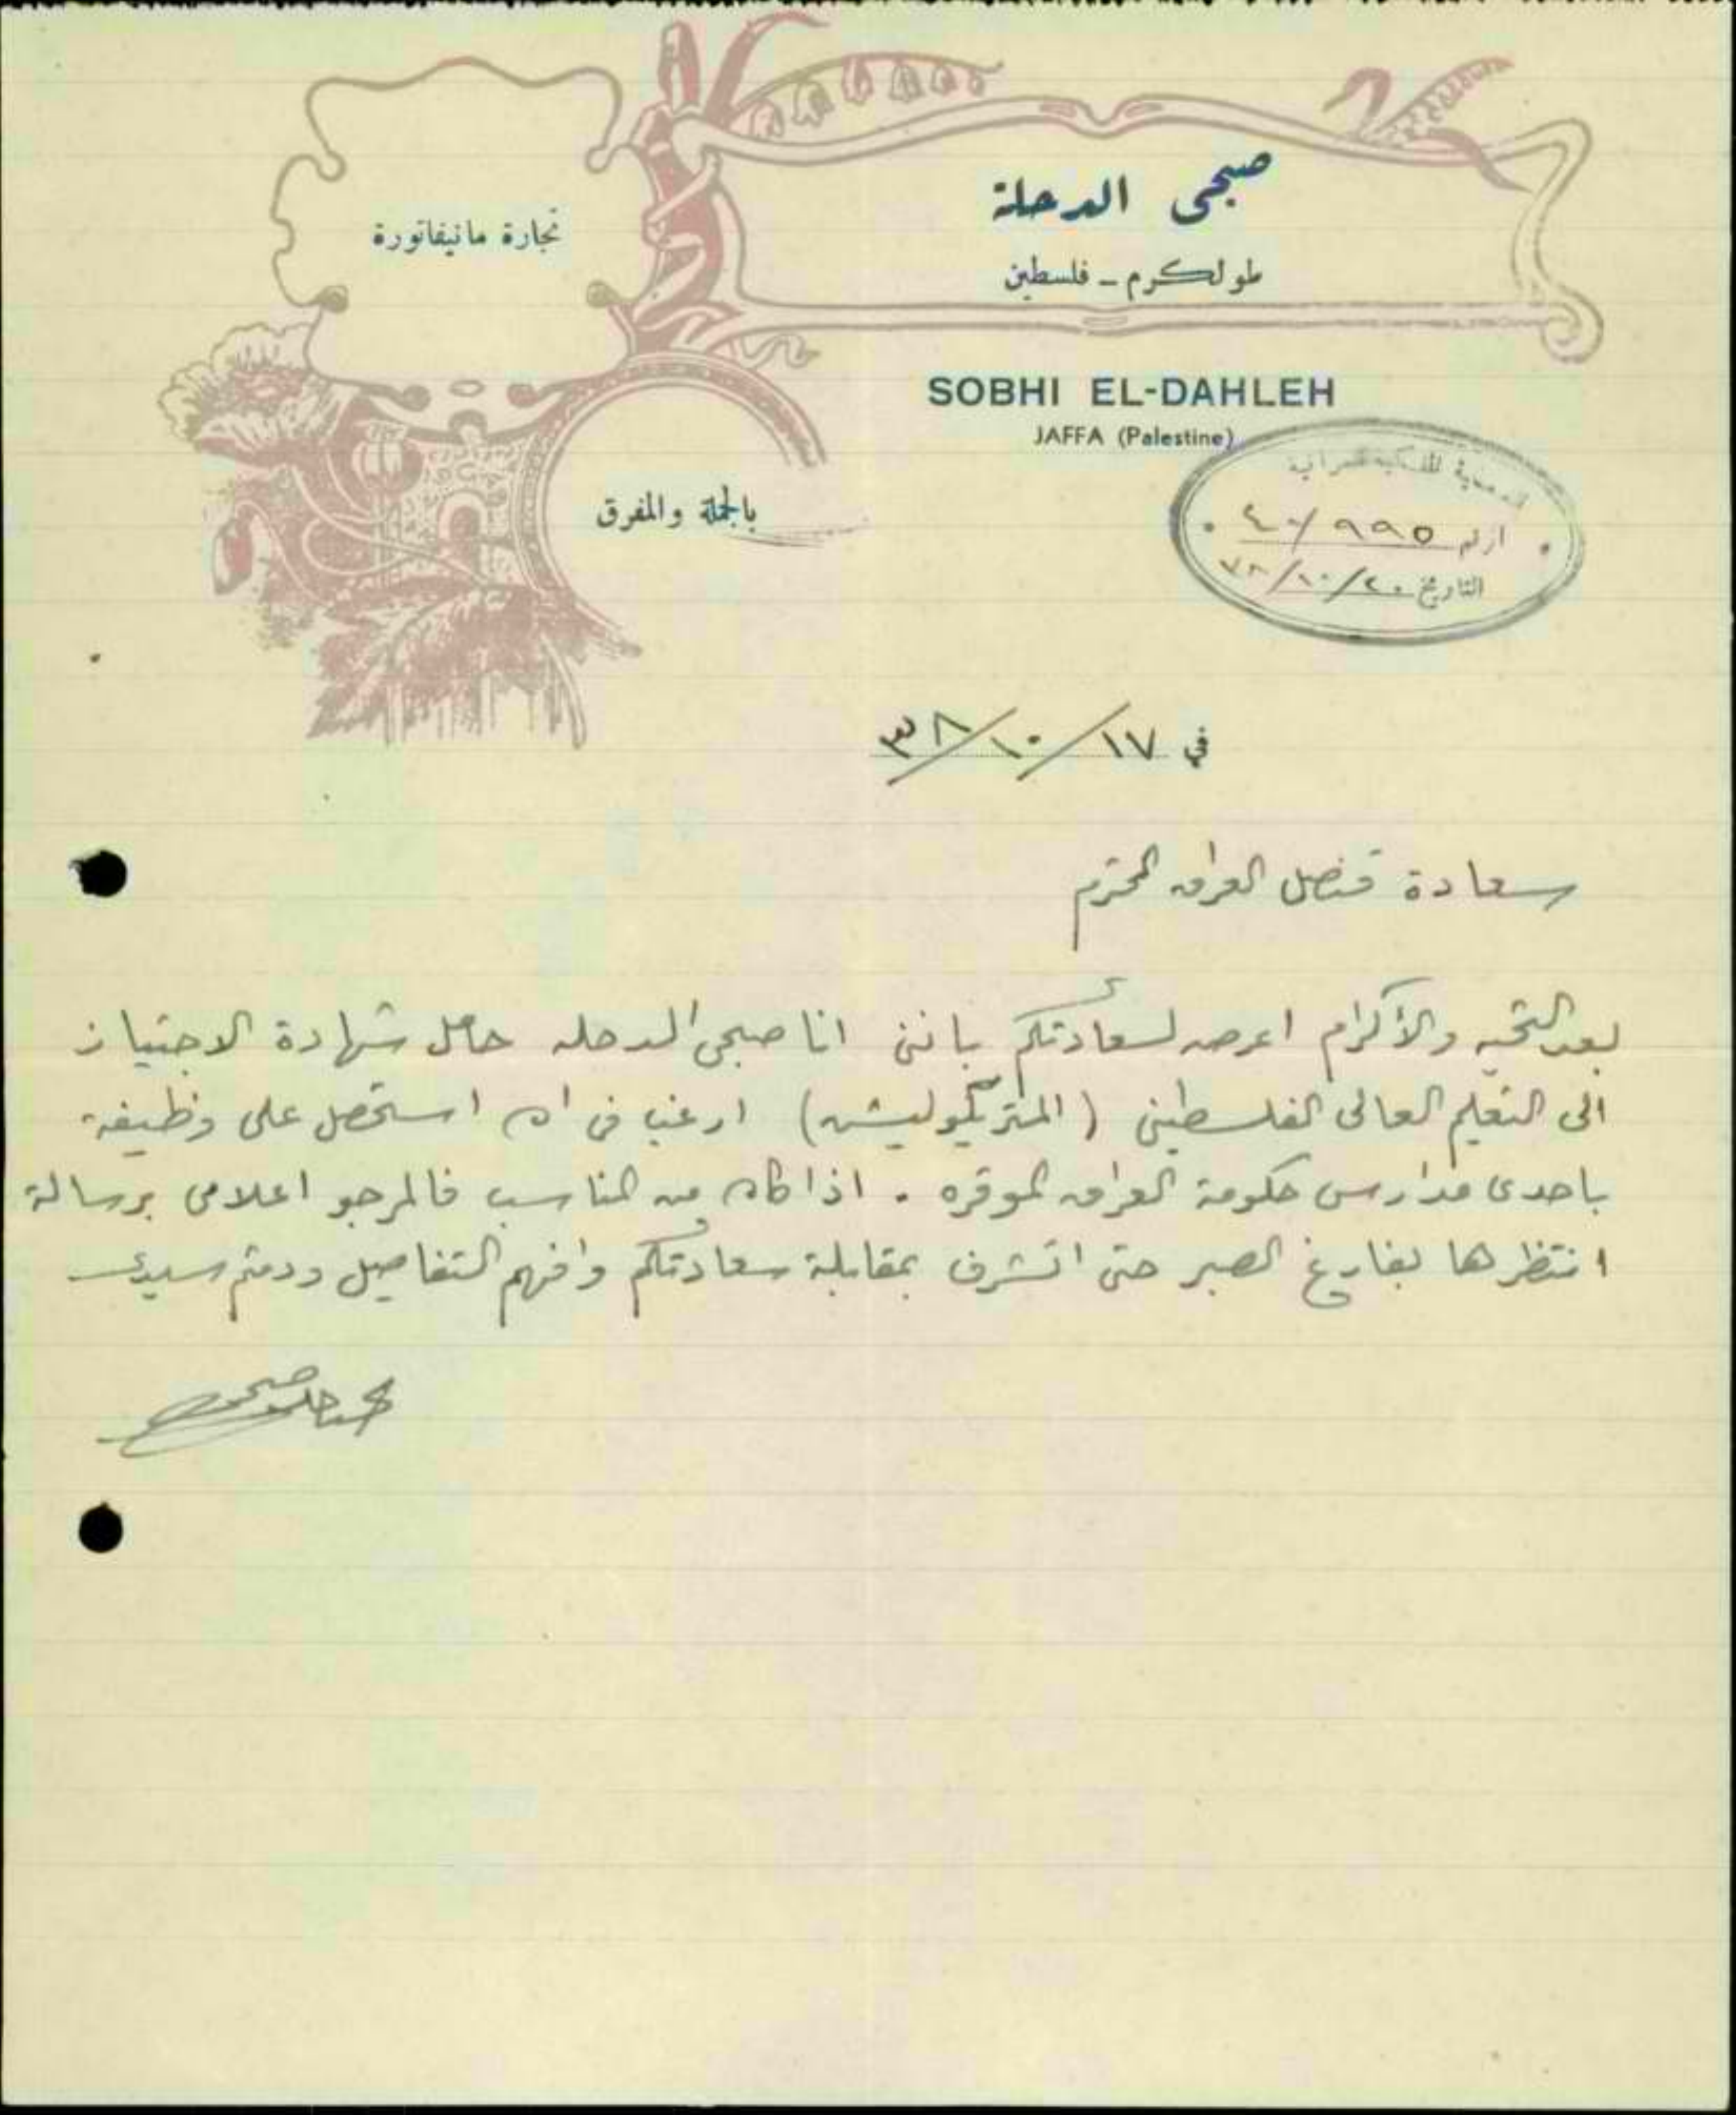 صبحي الدحلة
طولكرم - فلسطين
تجارة مانيفاتورة
SOBHI EL-DAHLEH
JAFFA (Palestine)
بالجملة والمفرق
القنصلية الملكية العراقية
الرقم ٤٠/٩٩٥
التاريخ ٢٠/١٠/٣٨
في ١٧/١٠/٣٨
سعادة قنصل العراق المحترم
بعد التحيه والأكرام اعرض لسعادتكم بانني انا صبحي الدحله حامل شهادة الاجتياز
الى التعليم العالى الفلسطيني (المتريكوليشن) ارغب في ان استحصل على وظيفة
باحدى مدارس حكومة العراق الموقره . اذا كان من المناسب فالمرجو اعلامي برسالة
انتظرها بفارغ الصبر حتى اتشرف بمقابلة سعادتكم وافهم التفاصيل ودمتم سيدي